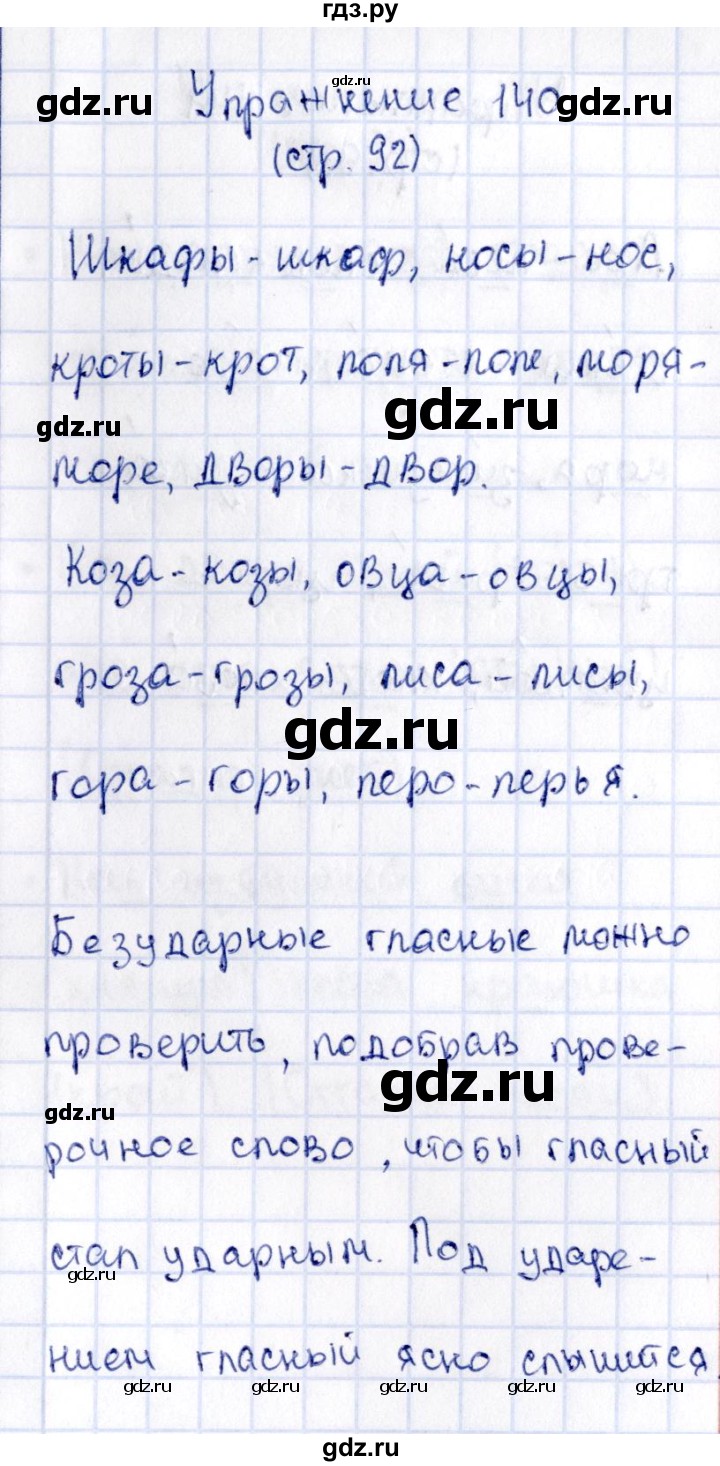 гдз.ру
gdz.ru
Упражнение 140
gdz.ru
gdz.ru
(стр. 92)
Шкафы - шкаф, носы - нос,
кроты - крот, поля - поле, моря -
gdz.ru
gdz.ru
море, дворы - двор.
Коза - козы, овца - овцы,
гроза - грозы, лиса - лисы,
gdz.ru
гора - горы, перо - перья.
Безударные гласные можно
проверить, подобрав прове-
gdz.ru
gdz.ru
рочное слово, чтобы гласный
стал ударным. Под ударе-
gdz.ru
нием гласный ясно слышится.
gdz.ru gdz.ru gdz.ru gdz.ru gdz.ru
gdz.ru